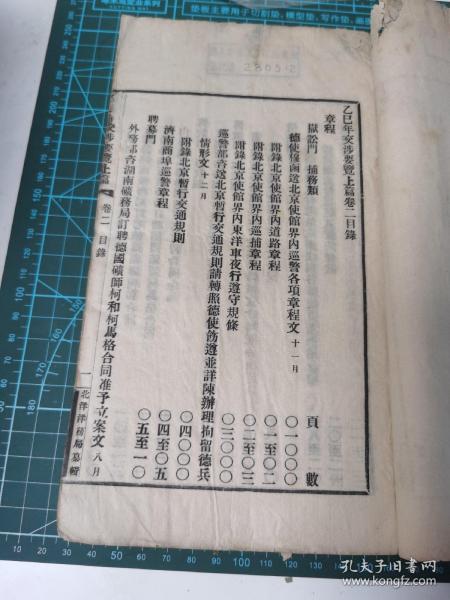 乙巳年交涉要覽上篇卷二目錄
章程
獄訟門 捕務類
頁數
德使穆函送北京使館界內巡警各項章程文 十一月
〇一〇〇〇
附錄北京使館界內道路章程
〇一至〇二
附錄北京使館界內巡捕章程
〇二至〇三
附錄北京使館界內東洋車夜行遵守規條
〇三〇〇〇
巡警部咨送北京暫行交通規則請轉照德使飭遵並詳陳辦理拘留德兵
情形文 十二月
附錄北京暫行交通規則
〇四〇〇〇
濟南商埠巡警章程
〇四至〇五
聘募門
外務部咨湖南礦務局訂聘德國礦師柯和柯馬格合同准予立案文 八月
〇五至一〇
交涉要覽上篇
卷二 目錄
一
北洋洋務局纂輯
28052
墊板主要用于切割墊，模型墊，写作墊
孔夫子旧书网
www.kongfz.com